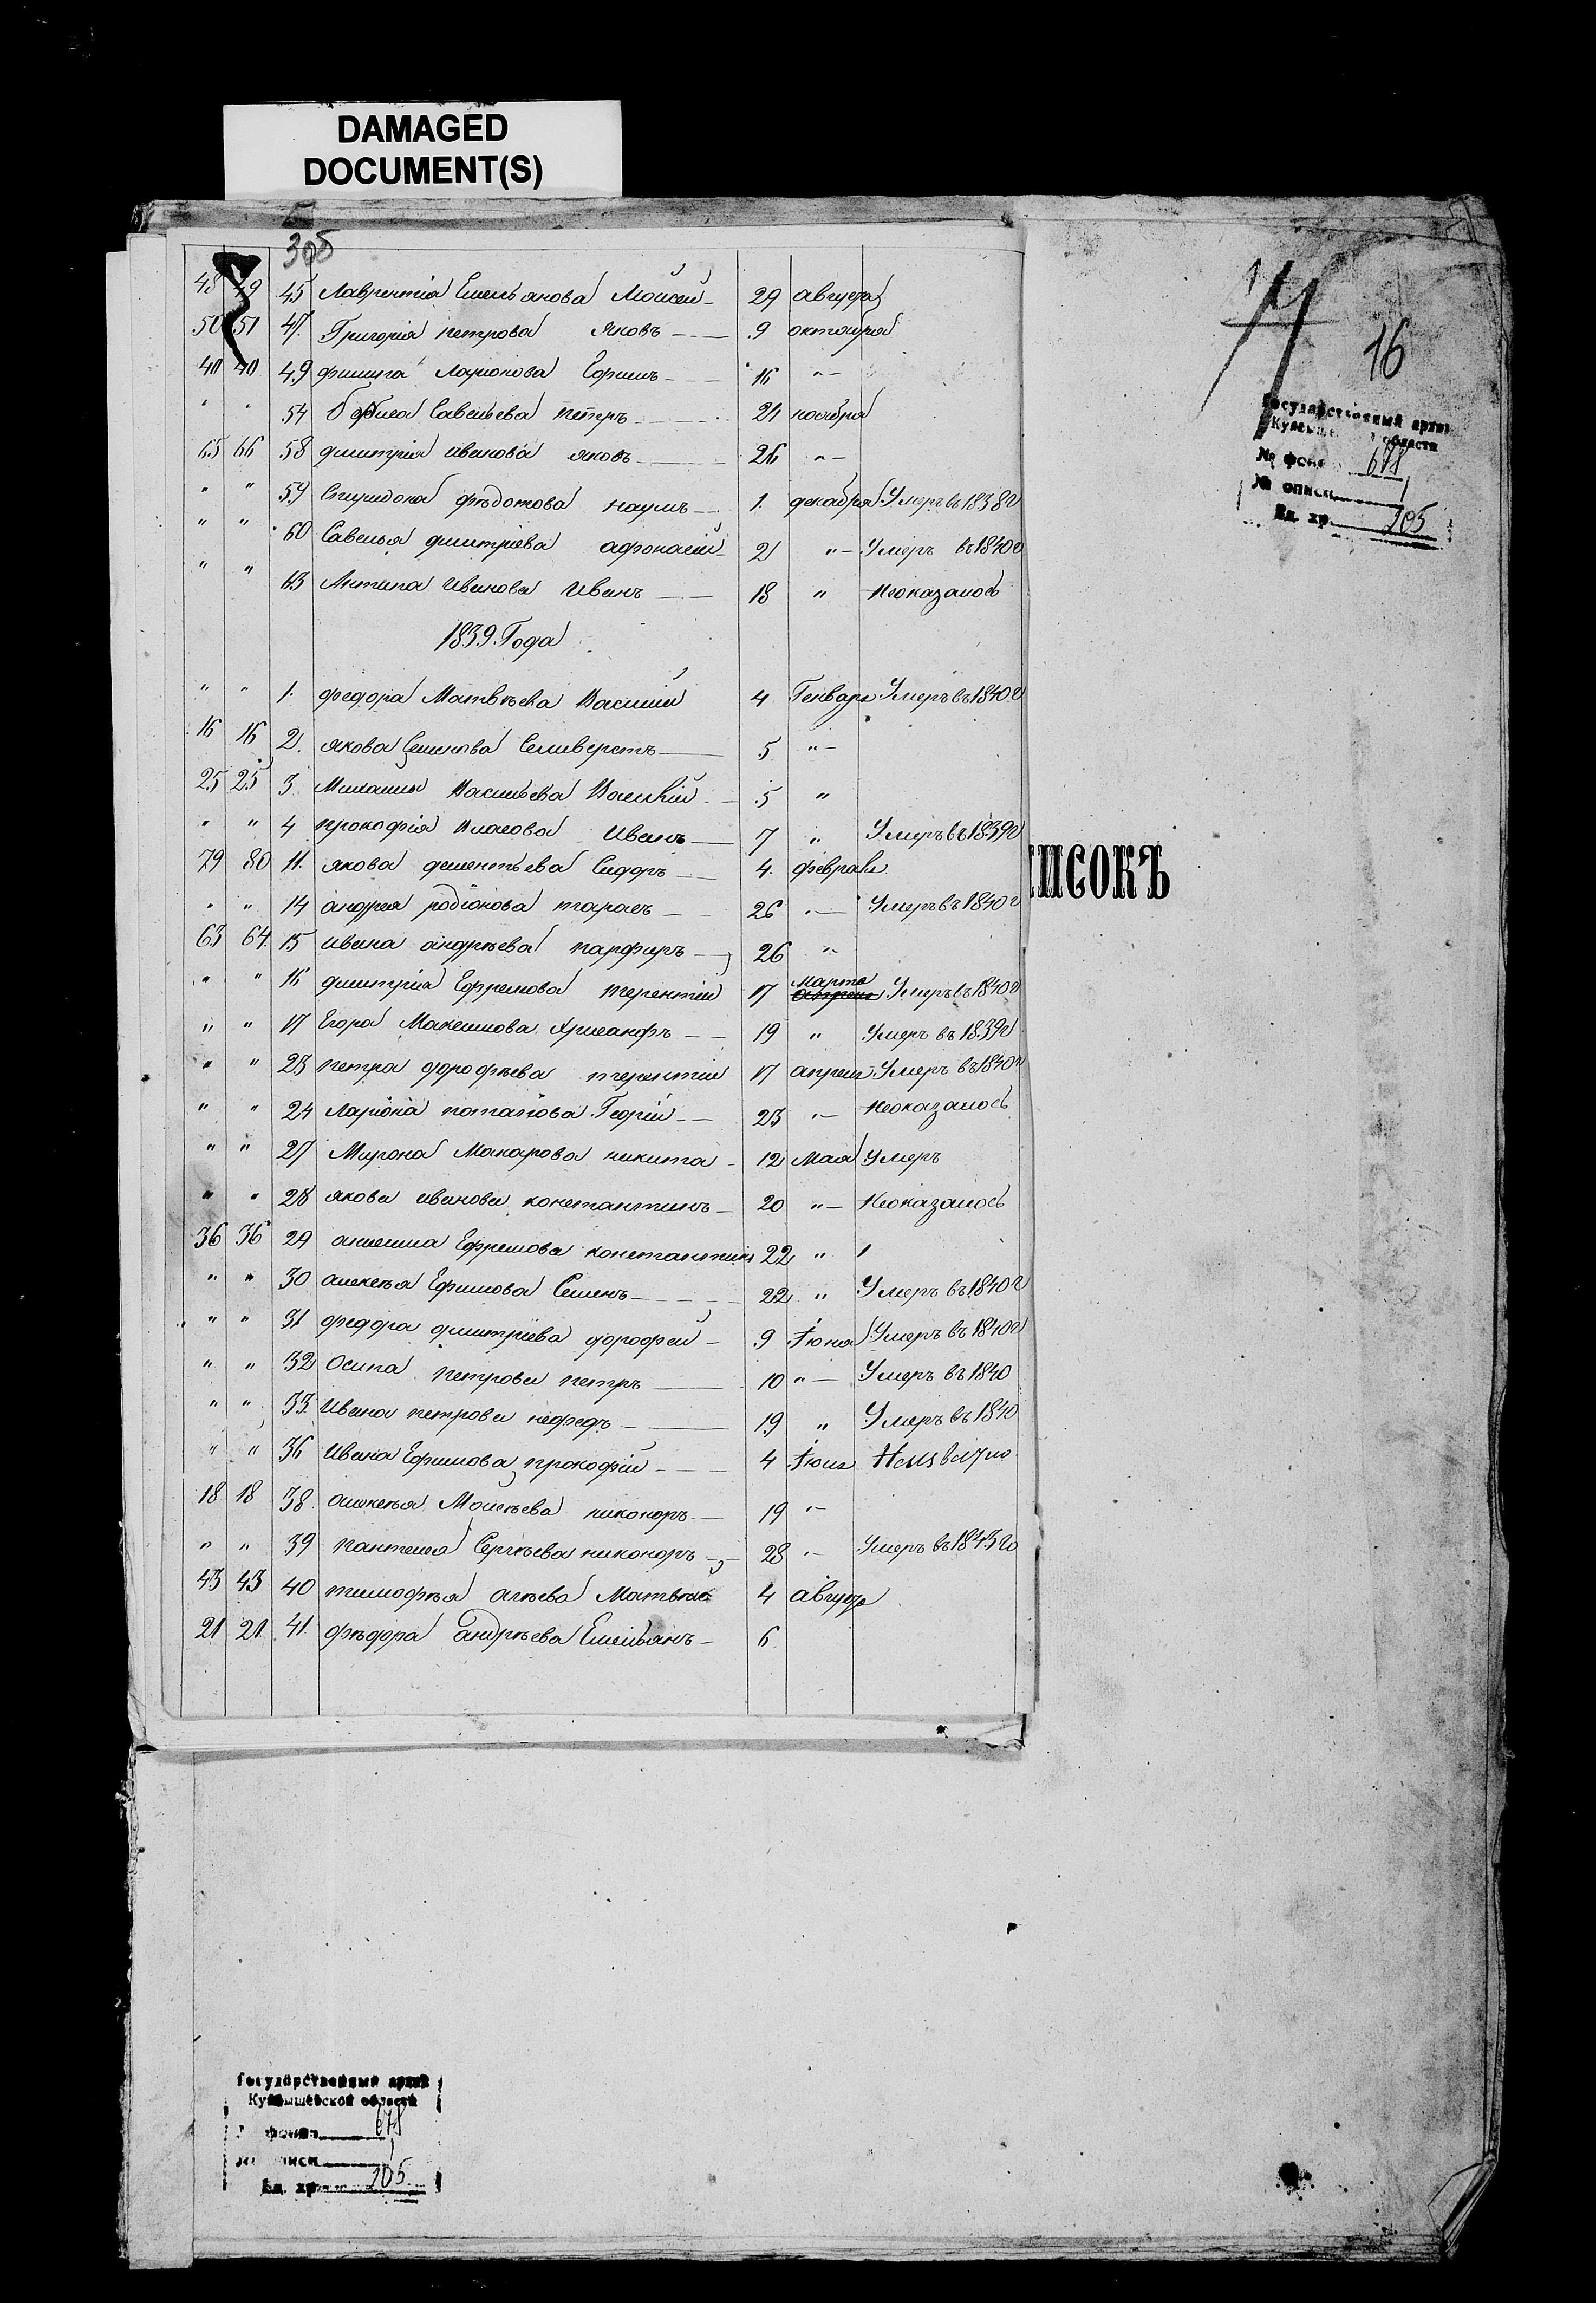 DAMAGED
DOCUMENT(S)
305
48 49 45 Лаврентіа Емельянова Моисей 29 августа
50 51 47 Григоріа петрова Яковъ 9 октобря
40 40 49 филипа Ларионова Ефимъ 16 "
" " 54 Савельева петръ 21 ноября
65 66 58 дмитрія иванова яковъ 26 "
" " 59 Спиридона фѣдотова наумъ 1 декабря Умеръ въ 1838 г
" " 60 Савелья дмитріева афонасий 2 " Умеръ въ 1840 г
" " 63 Антипа Иванова Иванъ 18 " Неоказалось
1839. Года
" " 1. федора Матвѣева Василий 4 Генваря Умеръ въ 1840 г
16 16 2. якова Семенова Селиверстъ 5 "
25 25 3 Васильева 5 "
" " 4 прокофія Власова Иванъ 7 " Умеръ въ 1839 г
79 80 11. якова дементьева Сидоръ 4. февраля
" " 14 андрея родіонова тарасъ 26 " Умеръ въ 1840 г
63 64 15 ивана андрѣева парфиръ 26 "
" " 16 дмитрія Ефремова терентий 17 марта Умеръ въ 1840 г
" " 17 Егора Максимова 19 " Умеръ въ 1839 г
" " 23 петра дорофѣева терентий 17 апреля Умеръ въ 1840 г
" " 24 Лариона потапова Георгий 23 " Неоказалось
" " 27 Мирона Макарова никита 12 Мая Умеръ
" " 28 якова иванова константинъ 20 " Неоказалось
36 36 29 Ефремова константинъ 22 "
" " 30 алексѣя Ефимова Семенъ 22 " Умеръ въ 1840 г
" " 31 федора дмитріева дорофей 9 Іюня Умеръ въ 1840 г
" " 32 Осипа петрова петръ 10 " Умеръ въ 1840
" " 33. Ивана петрова нефедъ 19 " Умеръ въ 1840
" " 36 Ивана Ефимова прокофій 4 Іюля
18 18 38. алексѣя Моисѣева никоноръ 19 "
" " 39 пантелея Сергѣева никоноръ 28 " Умеръ въ 1843 го
43 43 40 тимофѣя Матвѣй 4 августа
21 21 41. фѣдора андрѣева Емельянъ 6
16
Государственный архив
области
№ фонда 671
№ описи 1
Ед. хр. 205
ПИСОКЪ
Государственный архив
Куйбышевской области
фонда 671
описи 1
Ед. хр. 205